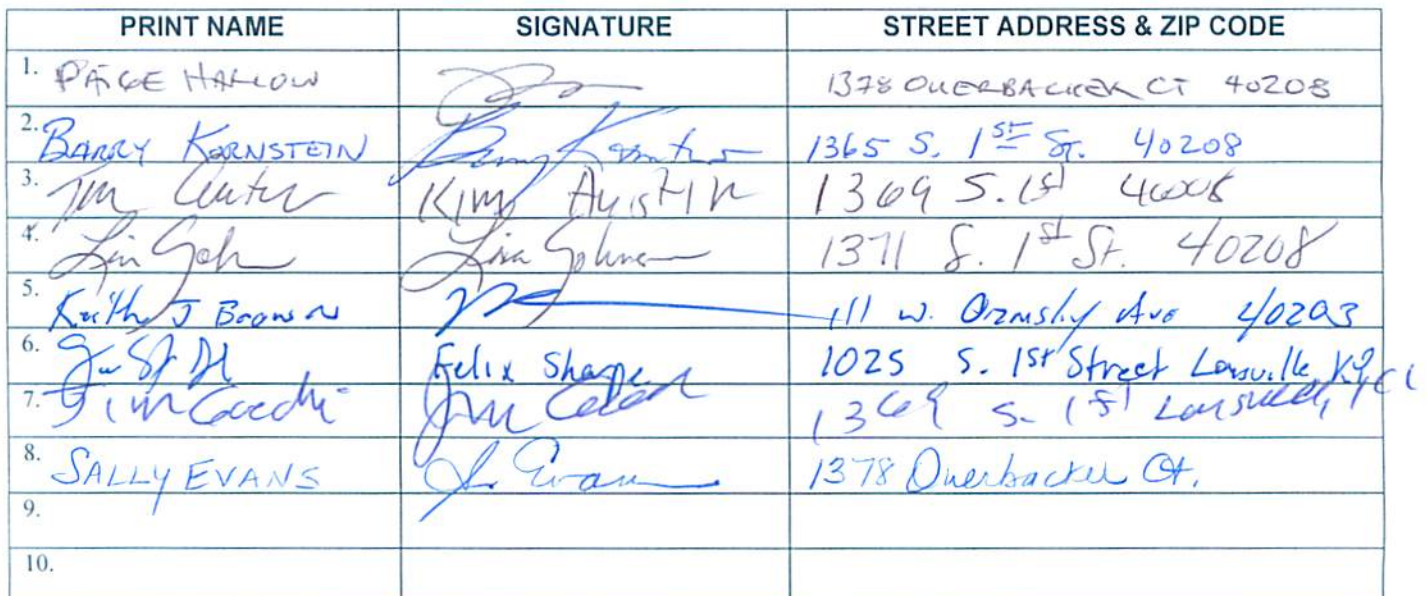 PRINT NAME SIGNATURE STREET ADDRESS & ZIP CODE
1. PAIGE HARLOW 1378 OUERBACKER CT 40208
2. BARRY KORNSTEIN Barry Kornstein 1365 S. 1st St. 40208
3. KIM AUSTIN 1369 S. 1st
4. Lisa 1371 S. 1st St. 40208
5. Keith J Brown 111 W. Ormsby Ave 40203
6. Felix Sharpe 1025 S. 1st Street Louisville, Ky
7. Jim 1369 S. 1st
8. SALLY EVANS Evans 1378 Ouerbacker Ct.
9.
10.